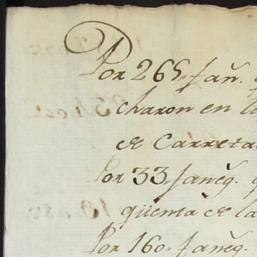 Por 265 fan.
charon en la
de Carreta
Por 33 faneg.
qüenta de la
Por 160 faneg.